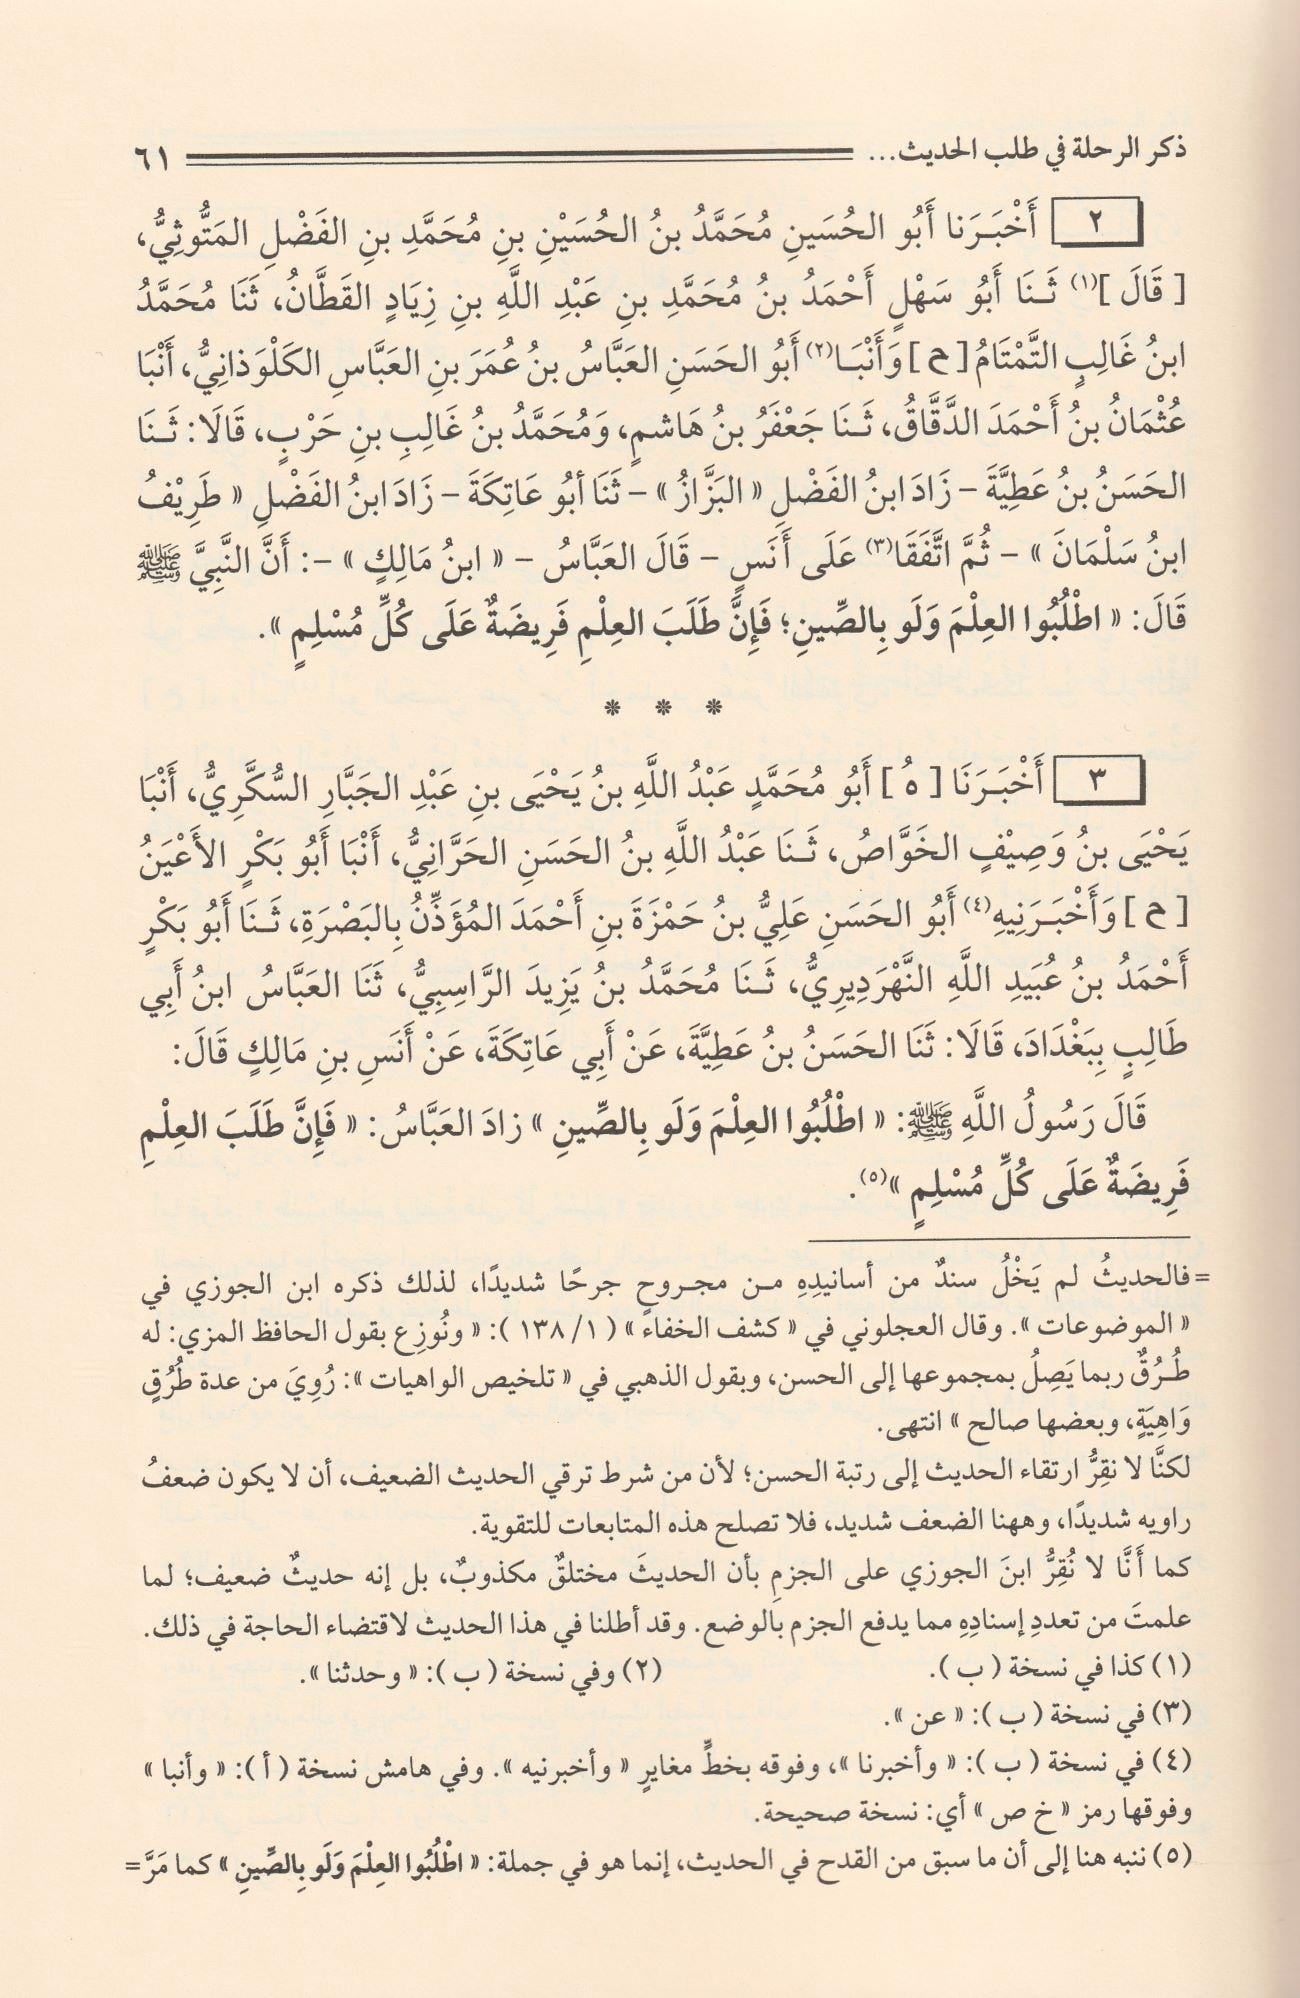 ذكر الرحلة في طلب الحديث... ٦١
٢ أَخْبَـرَنا أَبُو الحُسَينِ مُحَمَّدُ بنُ الحُسَيْنِ بنِ مُحَمَّدِ بنِ الفَضْلِ المَتُّوثِيُّ،
[ قَالَ ](١) ثَـنَا أَبُو سَهْلٍ أَحْمَدُ بنُ مُحَمَّدِ بنِ عَبْدِ اللَّهِ بنِ زِيَادٍ القَطَّانُ، ثَنَا مُحَمَّدُ
ابنُ غَالِبٍ التَّمْتَامُ [ ح ] وَأَنْبَـا(٢) أَبُو الحَسَنِ العَبَّاسُ بنُ عُمَرَ بنِ العَبَّاسِ الكَلْوَذانِيُّ، أَنْبَا
عُثْمَانُ بنُ أَحْمَدَ الدَّقَّاقُ، ثَـنَا جَعْفَرُ بنُ هَاشمٍ، وَمُحَمَّدُ بنُ غَالِبِ بنِ حَرْبٍ، قَالَا: ثَـنَا
الحَسَنُ بنُ عَطِيَّةَ – زَادَ ابنُ الفَضْلِ « البَزَّازُ » – ثَنَا أبُو عَاتِكَةَ – زَادَ ابنُ الفَضْلِ « طَرِيْفُ
ابنُ سَلْمَانَ » – ثُمَّ اتَّفَقَا(٣) عَلَى أَنَسٍ – قَالَ العَبَّاسُ – « ابنُ مَالِكٍ » –: أَنَّ النَّبِيَّ ﷺ
قَالَ: « اطْلُبُوا العِلْمَ وَلَو بِالصِّينِ؛ فَإِنَّ طَلَبَ العِلْمِ فَرِيضَةٌ عَلَى كُلِّ مُسْلِمٍ ».
* * *
٣ أَخْبَـرَنَا [ هُ ] أَبُو مُحَمَّدٍ عَبْدُ اللَّهِ بنُ يَحْيَى بنِ عَبْدِ الجَبَّارِ السُّكَّرِيُّ، أَنْبَا
يَحْيَى بنُ وَصِيْفٍ الخَوَّاصُ، ثَـنَا عَبْدُ اللَّهِ بنُ الحَسَنِ الحَرَّانِيُّ، أَنْبَا أَبُو بَكْرٍ الأَعْيَنُ
[ ح ] وَأَخْبَـرَنِيهِ(٤) أَبُو الحَسَنِ عَلِيُّ بنُ حَمْزَةَ بنِ أَحْمَدَ المُؤَذِّنُ بِالبَصْرَةِ، ثَـنَا أَبُو بَكْرٍ
أَحْمَدُ بنُ عُبَيدِ اللَّهِ النَّهْرَدِيرِيُّ، ثَـنَا مُحَمَّدُ بنُ يَزِيدَ الرَّاسِبِيُّ، ثَنَا العَبَّاسُ ابنُ أَبِي
طَالِبٍ بِبَغْدَادَ، قَالَا: ثَنَا الحَسَنُ بنُ عَطِيَّةَ، عَنْ أَبِي عَاتِكَةَ، عَنْ أَنَسِ بنِ مَالِكٍ قَالَ:
قَالَ رَسُولُ اللَّهِ ﷺ: « اطْلُبُوا العِلْمَ وَلَو بِالصِّينِ » زادَ العَبَّاسُ: « فَإِنَّ طَلَبَ العِلْمِ
فَرِيضَةٌ عَلَى كُلِّ مُسْلِمٍ »(٥).
= فالحديثُ لم يَخْلُ سندٌ من أسانيدِهِ مـن مجـروحٍ جرحًا شديدًا، لذلك ذكره ابن الجوزي في
« الموضوعات ». وقال العجلوني في « كشف الخفاء » ( ١/ ١٣٨ ): « ونُوزِع بقول الحافظ المزي: له
طُـرُقٌ ربما يَصِلُ بمجموعها إلى الحسن، وبقول الذهبي في « تلخيص الواهيات »: رُوِيَ من عدة طُرُقٍ
وَاهِيَةٍ، وبعضها صالح » انتهى.
لكنَّا لا نقِرُّ ارتقاء الحديث إلى رتبة الحسن؛ لأن من شرط ترقي الحديث الضعيف، أن لا يكون ضعفُ
راويه شديدًا، وههنا الضعف شديد، فلا تصلح هذه المتابعات للتقوية.
كما أنَّا لا نُقِرُّ ابنَ الجوزي على الجزمِ بأن الحديثَ مختلقٌ مكذوبٌ، بل إنه حديثٌ ضعيف؛ لما
علمتَ من تعددِ إسنادِهِ مما يدفع الجزم بالوضع. وقد أطلنا في هذا الحديث لاقتضاء الحاجة في ذلك.
(١) كذا في نسخة ( ب ). (٢) وفي نسخة ( ب ): « وحدثنا ».
(٣) في نسخة ( ب ): « عن ».
(٤) في نسخة ( ب ): « وأخبرنا »، وفوقه بخطٍّ مغايرٍ « وأخبرنيه ». وفي هامش نسخة ( أ ): « وأنبا »
وفوقها رمز « خ ص » أي: نسخة صحيحة.
(٥) ننبه هنا إلى أن ما سبق من القدح في الحديث، إنما هو في جملة: « اطْلُبُوا العِلْمَ وَلَو بِالصِّينِ » كما مَرَّ =